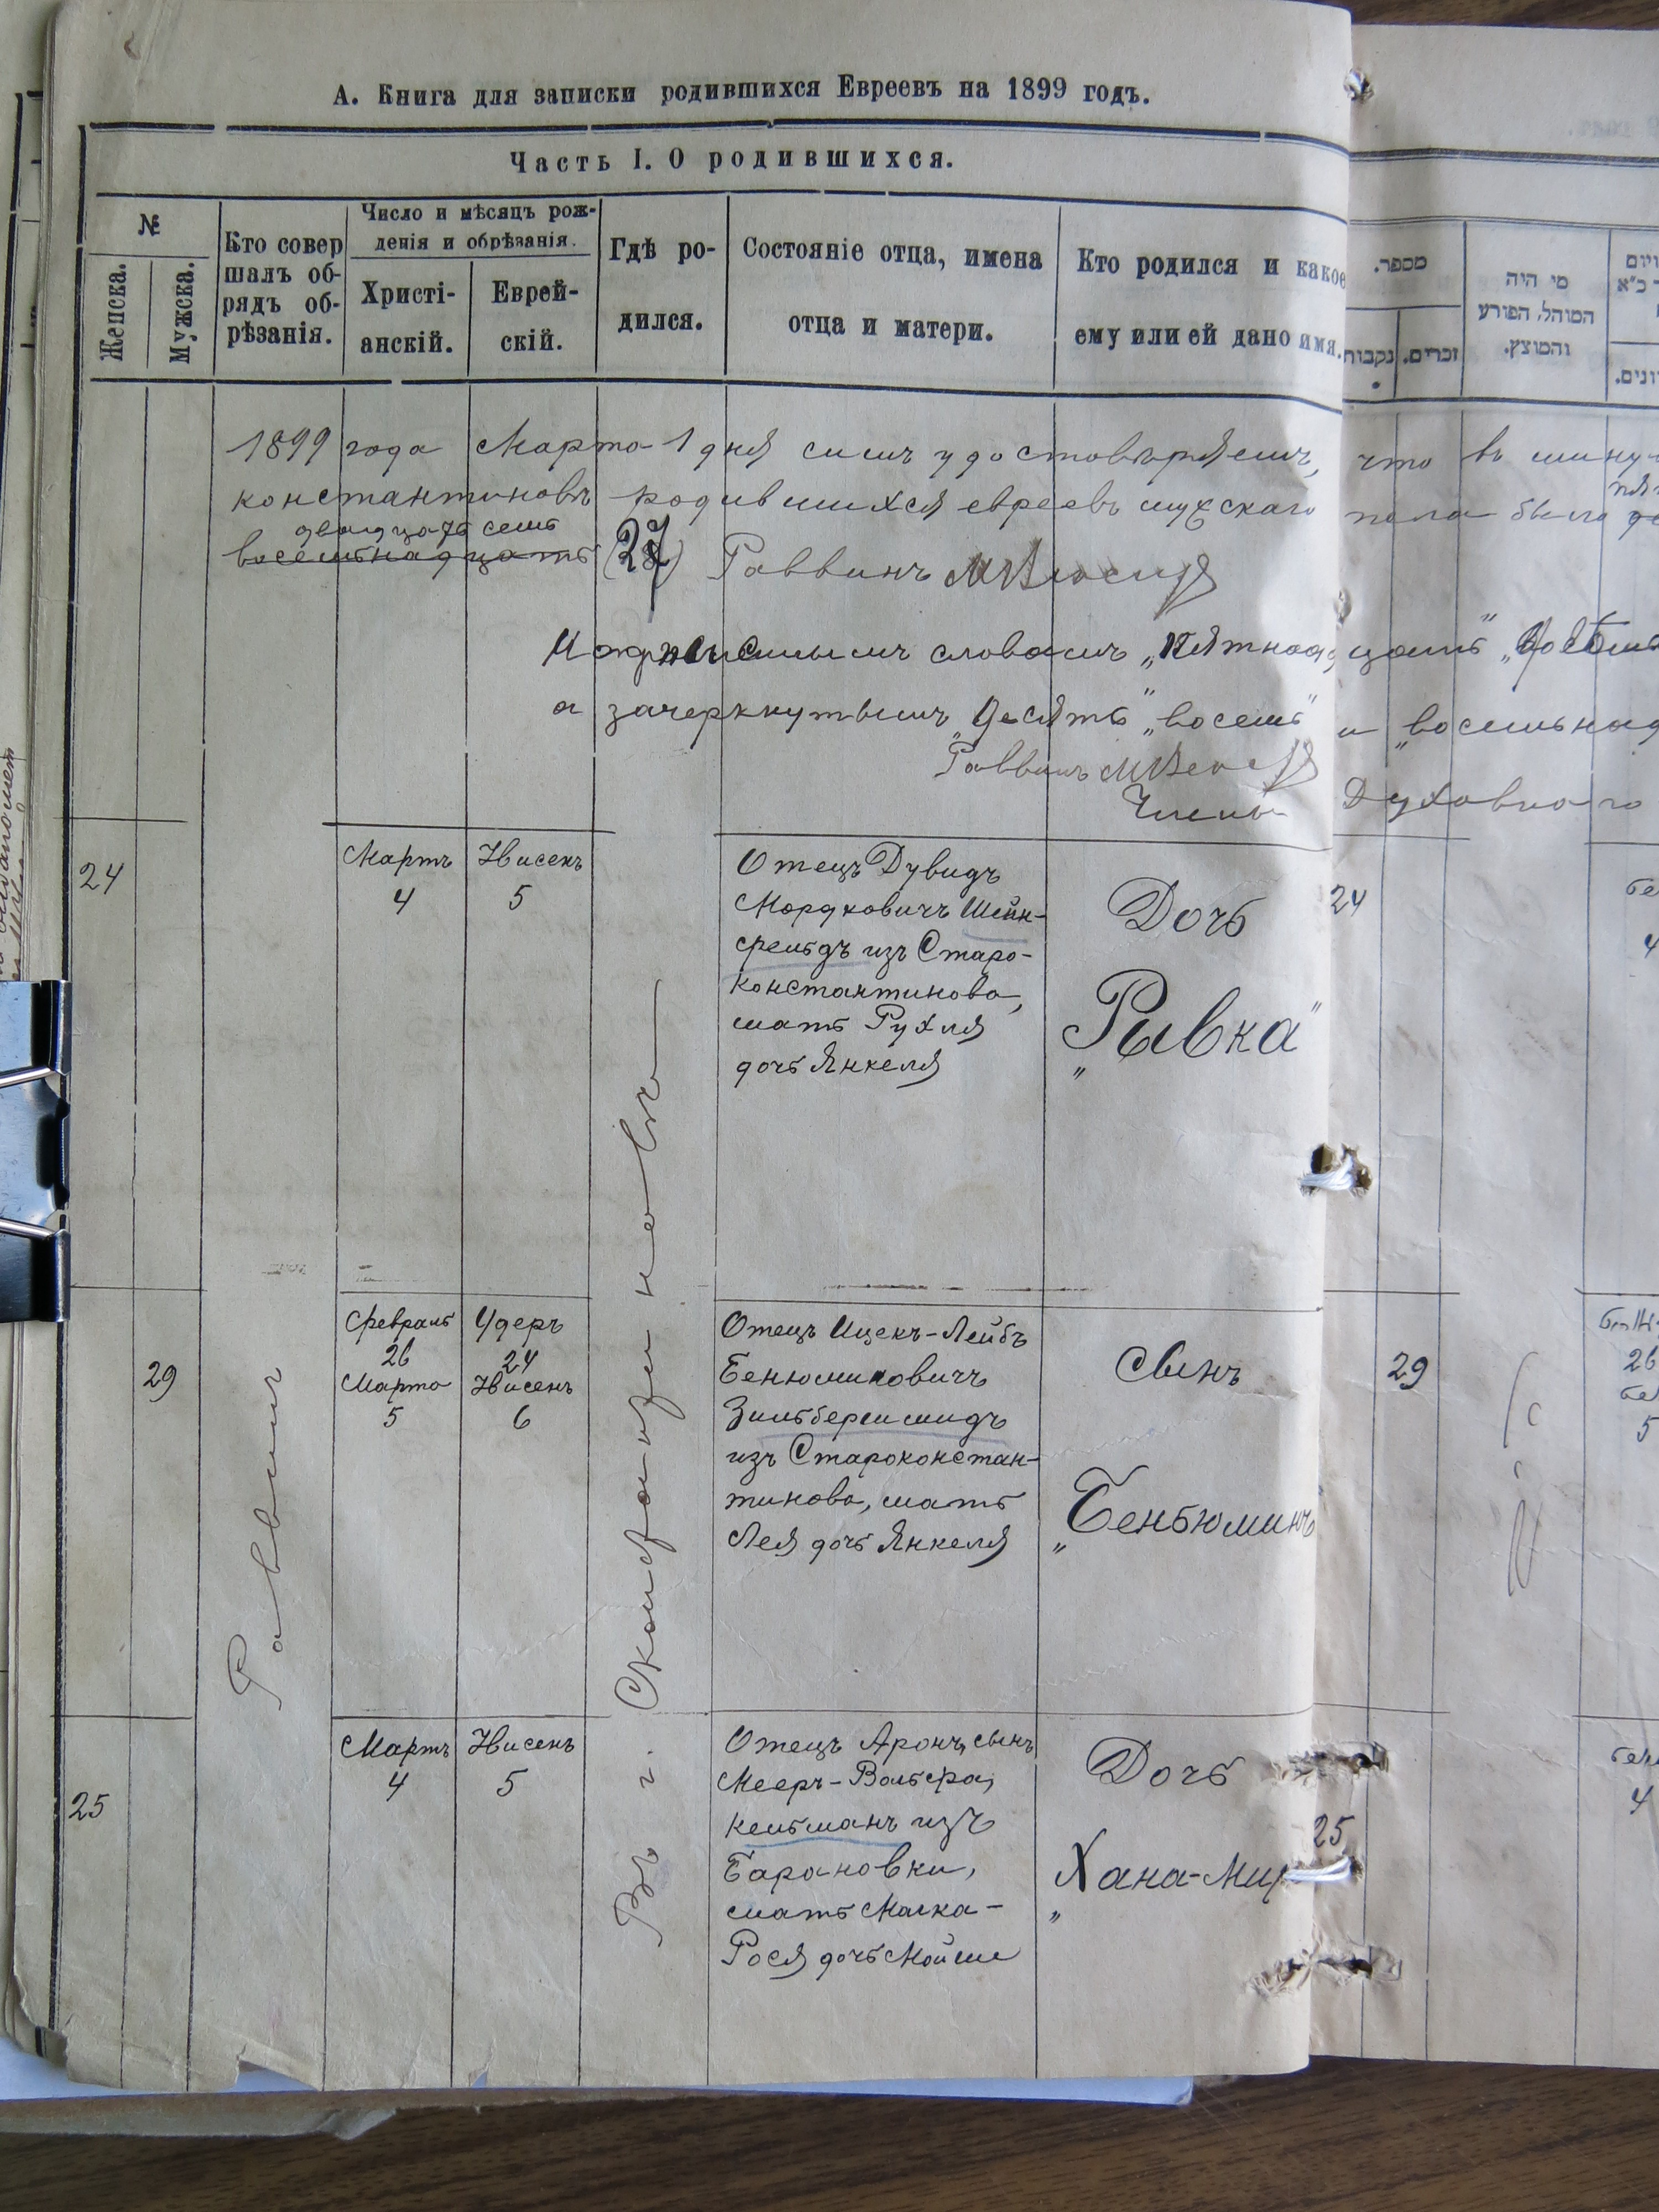 А. Книга для записки родившихся Евреевъ на 1899 годъ.
Часть I. О родившихся.
№
Женска.
Мужска.
Кто совер
шалъ об-
рядъ об-
рѣзанія.
Число и мѣсяцъ рож-
денія и обрѣзанія.
Христі-
анскій.
Еврей-
скій.
Гдѣ ро-
дился.
Состояніе отца, имена
отца и матери.
Кто родился и какое
ему или ей дано имя.
מספר.
נקבות
זכרים.
מי היה
המוהל, הפורע
והמוצץ.
1899 года Марта 1 дня симъ удостовѣряемъ, что въ
константиновѣ родившихся евреевъ мужскаго пола было
двадцать семь
восемьнадцать (27) Раввинъ
словамъ „пятнадцать"
а зачеркнутымъ „десять" „восемь" и
Раввинъ
Члены Духовнаго
24
Мартъ
4
Нисенъ
5
Отецъ Дувидъ
Мордковичъ Шейн-
фельдъ изъ Старо-
константинова,
мать Рухля
дочь Янкеля
Дочь
„Рывка"
24
4
29
Февраль
26
Марта
5
Удеръ
24
Нисенъ
6
Отецъ Ицекъ-Лейбъ
Бенюминовичъ
Зильбершмидъ
изъ Староконстан-
тинова, мать
Лея дочь Янкеля
Сынъ
„Беньюминъ
29
26
5
25
Мартъ
4
Нисенъ
5
Отецъ Аронъ, сынъ
Мееръ-Вольфа,
Кельманъ изъ
Барановки,
мать Малка-
Рося дочь Мойше
Дочь
„Хана-
25
4
Раввинъ
Въ г.